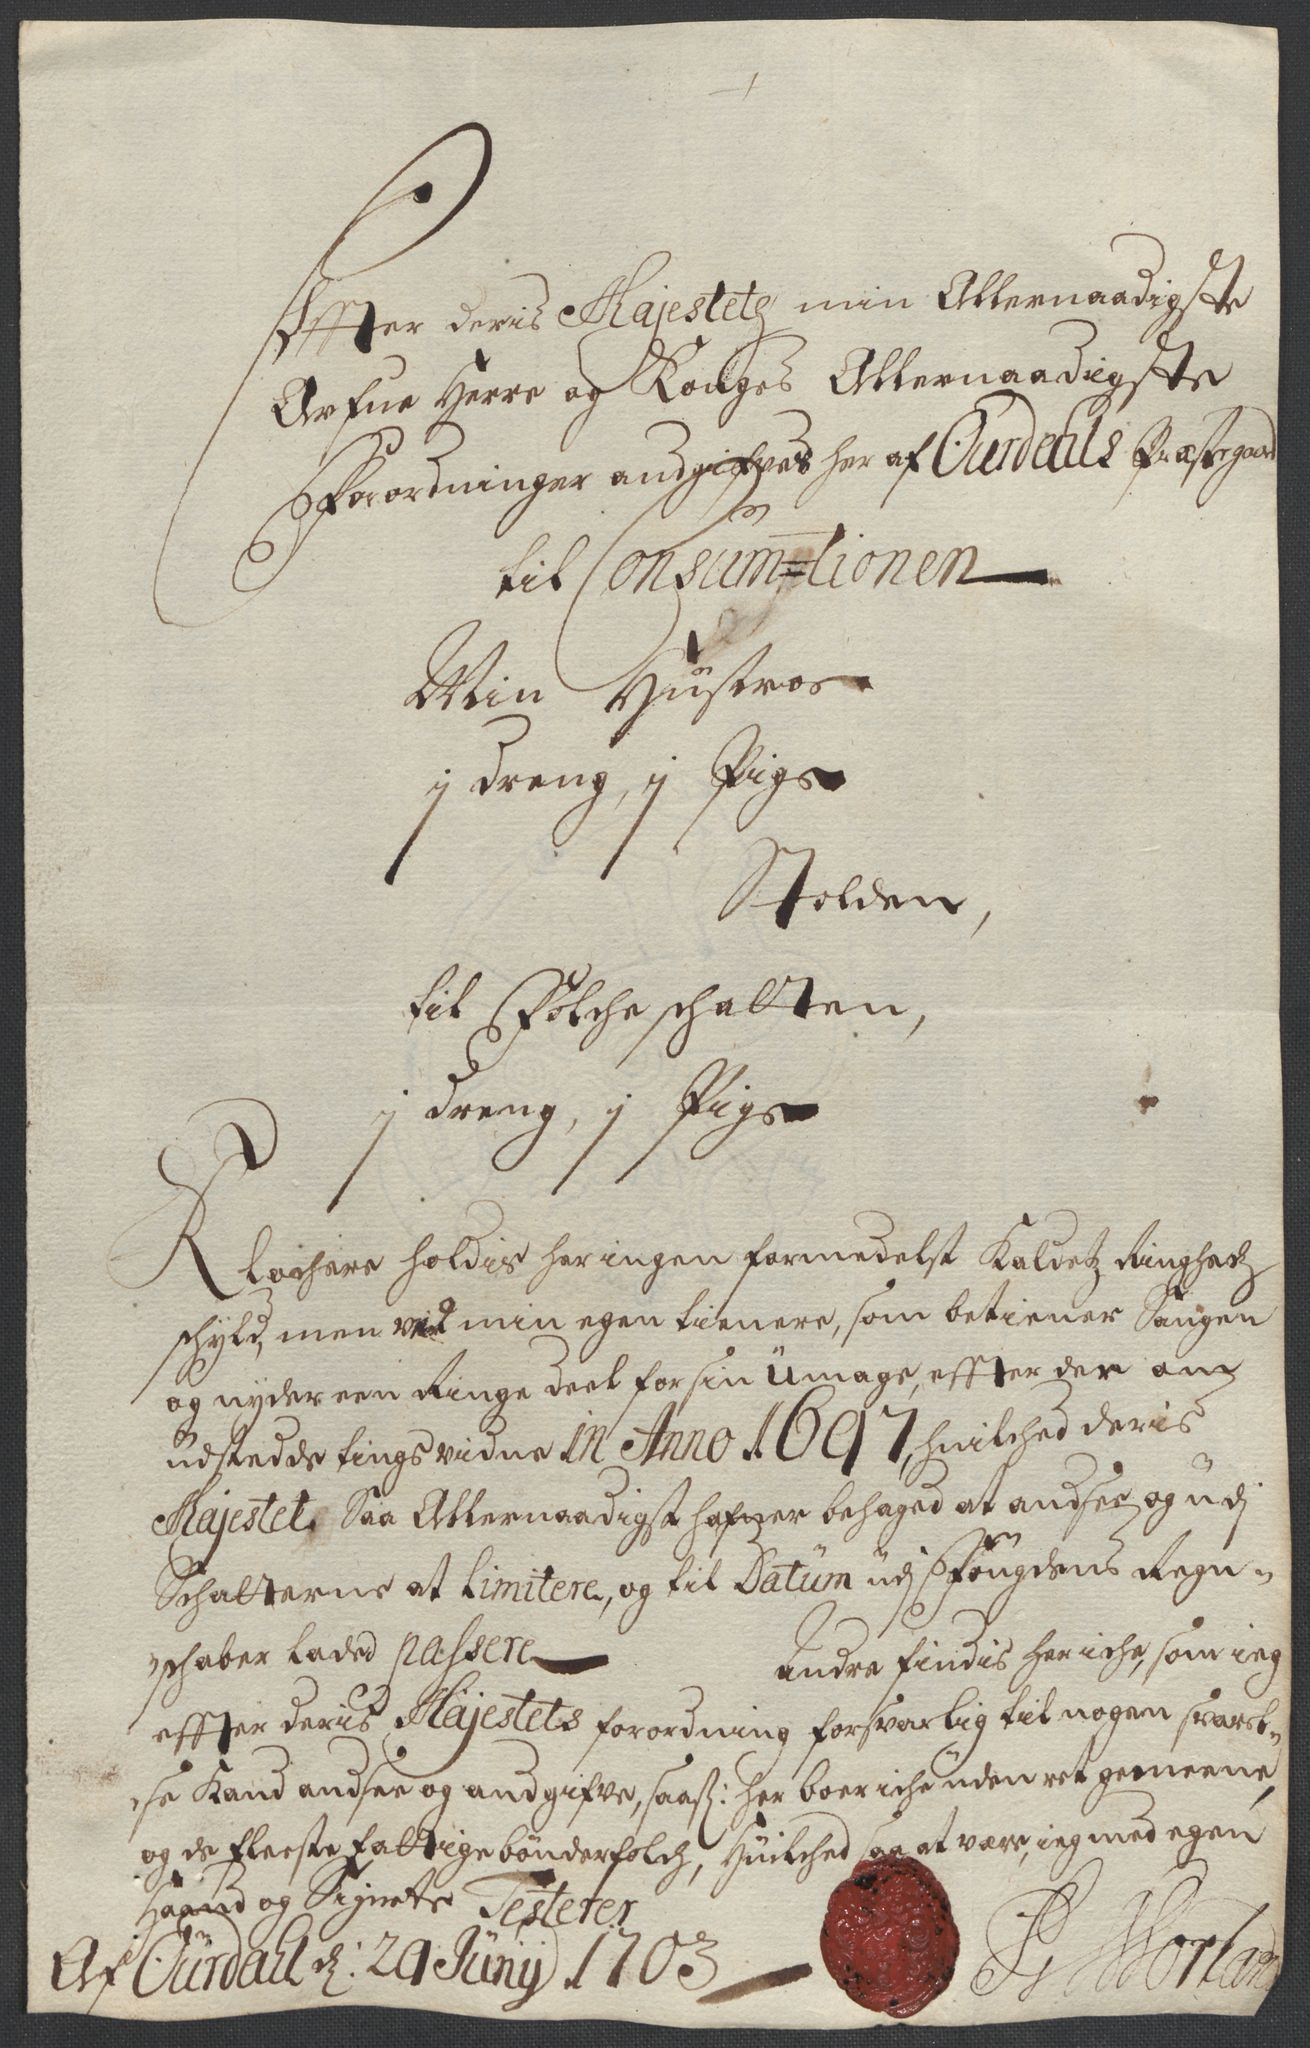 Effter deris Majestetz min Allernaadigste
Arfue Herre og Konges Allernaadigste
Forordninger andgifves her af Ourdals Præstegaard
til Consum=tionen
Min Hustroe
j dreng, j Pige
Stolden,
til Folcheschatten,
j dreng, j Pige
Klochere holdis her ingen formedelst Kaldetz Ringheds
schyld, men ved min egen tienere, som betiener Sangen
og nyder een Ringe deel for sin Umage, effter der om
udstedde tingsvidne in Anno 1697, huilched deris
Majestet. Saa Allernaadigst hafver behaged at andsee og udj
Schatterne at limitere, og til Datum udj Fougdens Regn-
schaber laded passere
Andre findis her iche, som ieg
effter deris Majestets forordning forsvarlig til nogen svarel-
se kand andsee og andgifve, saas: her boer iche uden ret gemeene,
og de fleeste fattige bønderfolch, Huilched saa at være, ieg med egen
Haand og Signete Testerer
Af Ourdail d: 29 Junij 1703
P. Morland